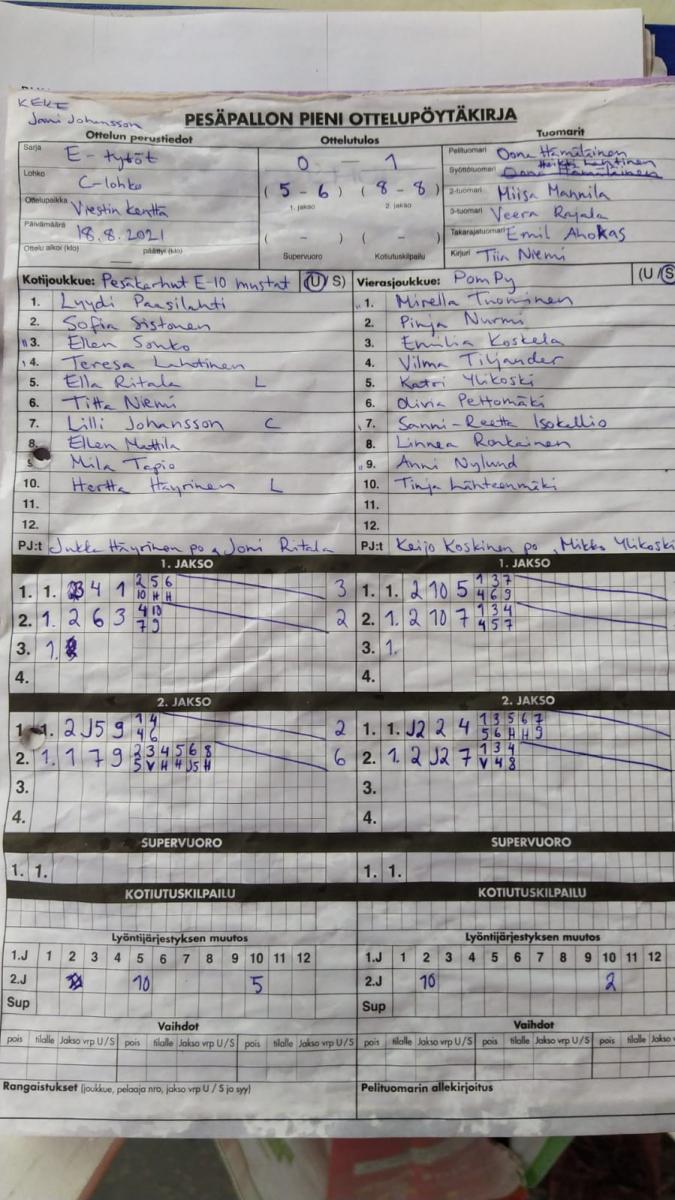 KEKE
Joni Johansson
PESÄPALLON PIENI OTTELUPÖYTÄKIRJA
Ottelun perustiedot Ottelutulos Tuomarit
Sarja E-tytöt
Lohko C-lohko
Ottelupaikka Viestin kenttä
Päivämäärä 18.8.2021
Ottelu alkoi (klo) päättyi (klo)
0 – 1
(5 – 6) (8 – 8)
1. jakso 2. jakso
( – ) ( – )
Supervuoro Kotiutuskilpailu
Pelituomari Oona Hämäläinen
Syöttötuomari
2-tuomari Miisa Mannila
3-tuomari Veera Rajala
Takarajatuomari Emil Ahokas
Kirjuri Tiia Niemi
Kotijoukkue: Pesäkarhut E-10 mustat (U/S) Vierasjoukkue: PomPy (U/S
1. Lyydi Paasilahti 1. Mirella Tuominen
2. Sofia Sistonen 2. Pinja Nurmi
3. Ellen Sonko 3. Emilia Koskela
4. Teresa Lahtinen 4. Vilma Tiljander
5. Ella Ritala L 5. Katri Ylikoski
6. Titta Niemi 6. Olivia Peltomäki
7. Lilli Johansson C 7. Sanni-Reetta Isokallio
8. Ellen Mattila 8. Linnea Ronkainen
9. Mila Tapio 9. Anni Nylund
10. Hertta Häyrinen L 10. Tinja Lähteenmäki
11. 11.
12. 12.
PJ:t Jukka Häyrinen po, Joni Ritala PJ:t Keijo Koskinen po, Mikko Ylikoski
1. JAKSO 1. JAKSO
1. 1. 3 4 1 2 5 6 3 1. 1. 2 10 5 1 3 7
10 H H 4 6 9
2. 1. 2 6 3 4 10 2 2. 1. 2 10 7 1 3 4
7 9 4 5 7
3. 1. 3. 1.
4. 4.
2. JAKSO 2. JAKSO
1. 1. 2 J5 9 1 4 2 1. 1. J2 2 4 1 3 5 6 7
4 6 5 6 H H 9
2. 1. 1 7 9 2 3 4 5 6 8 6 2. 1. 2 J2 7 1 3 4
5 V H 4 J5 H V 4 8
3. 3.
4. 4.
SUPERVUORO SUPERVUORO
1. 1. 1. 1.
KOTIUTUSKILPAILU KOTIUTUSKILPAILU
Lyöntijärjestyksen muutos Lyöntijärjestyksen muutos
1.J 1 2 3 4 5 6 7 8 9 10 11 12 1.J 1 2 3 4 5 6 7 8 9 10 11 12
2.J 10 5 2.J 10 2
Sup Sup
Vaihdot Vaihdot
pois tilalle Jakso vrp U/S pois tilalle Jakso vrp U/S pois tilalle Jakso vrp U/S pois tilalle Jakso vrp U/S pois tilalle Jakso vrp U/S pois tilalle Jakso
Rangaistukset (joukkue, pelaaja nro, jakso vrp U / S ja syy) Pelituomarin allekirjoitus